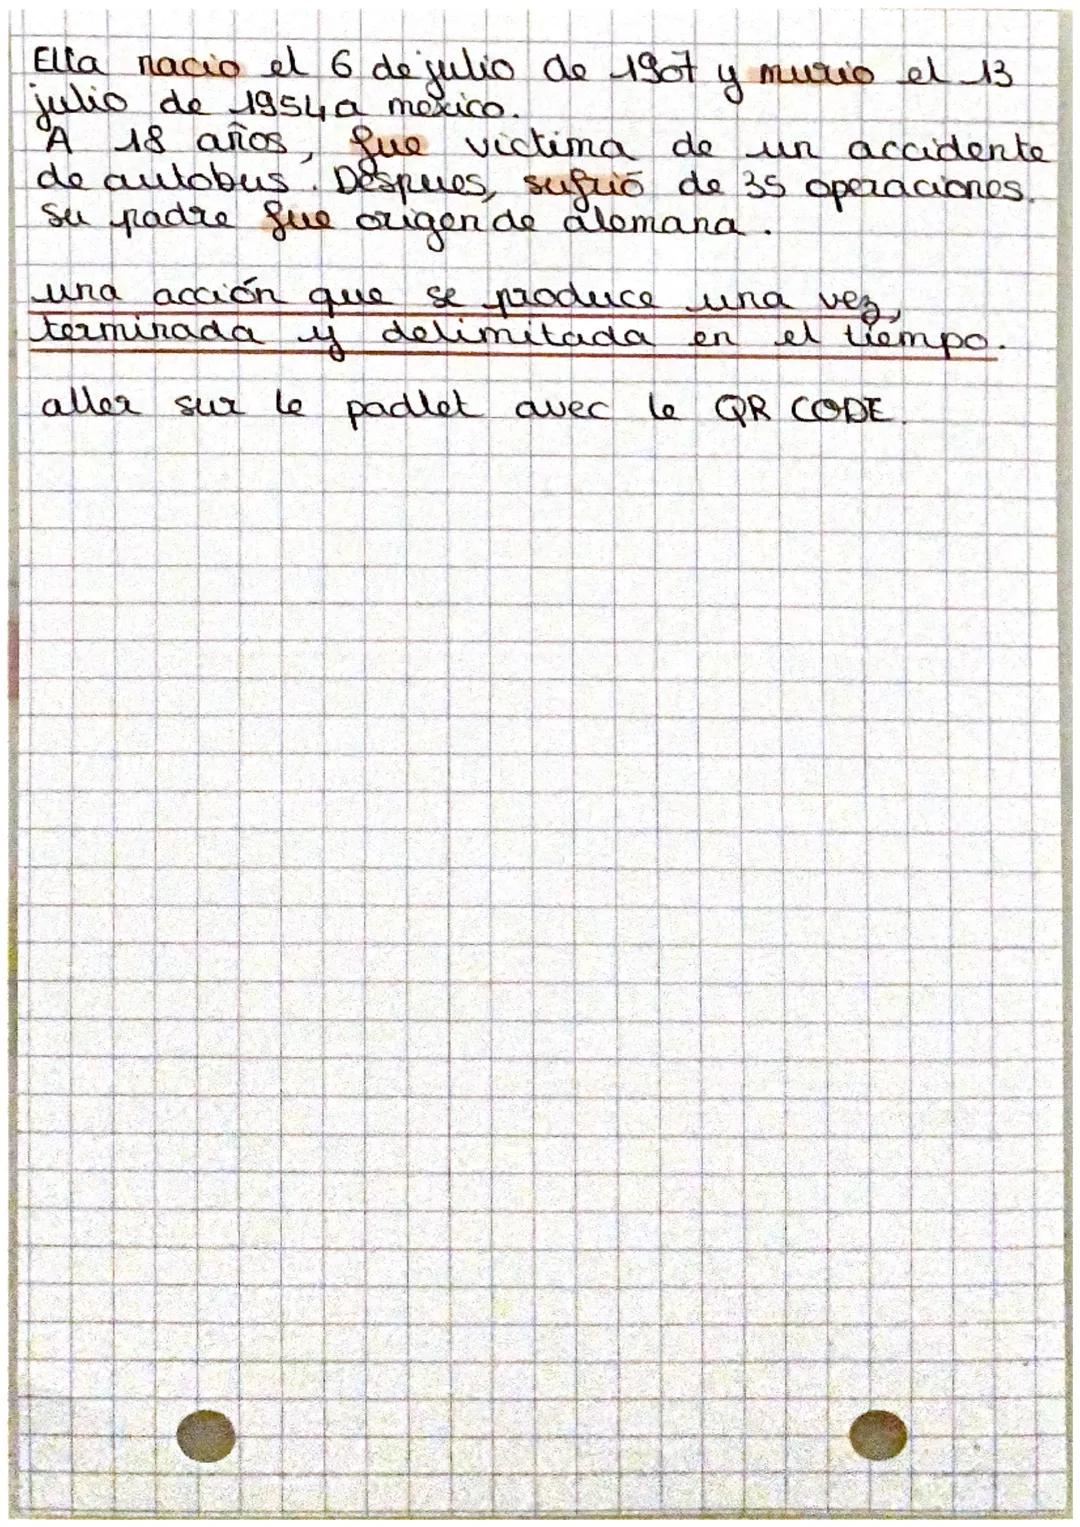 Ella nacio el 6 de julio de 1907 y murio el 13
julio de 1954 a mexico.
A 18 años, fue victima de un accidente
de autobus. Despues, sufrió de 35 operaciones.
su padre fue origen de alemana.
una acción que se produce una vez,
terminada y delimitada en el tiempo.
aller sur le padlet avec le QR CODE.